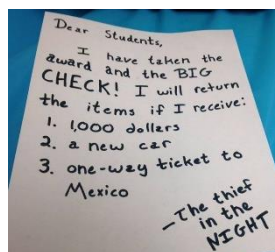 Dear Students,
I have taken the
award and the BIG
CHECK! I will return
the items if I receive:
1. 1,000 dollars
2. a new car
3. one-way ticket to
Mexico
—The thief
in the
NIGHT